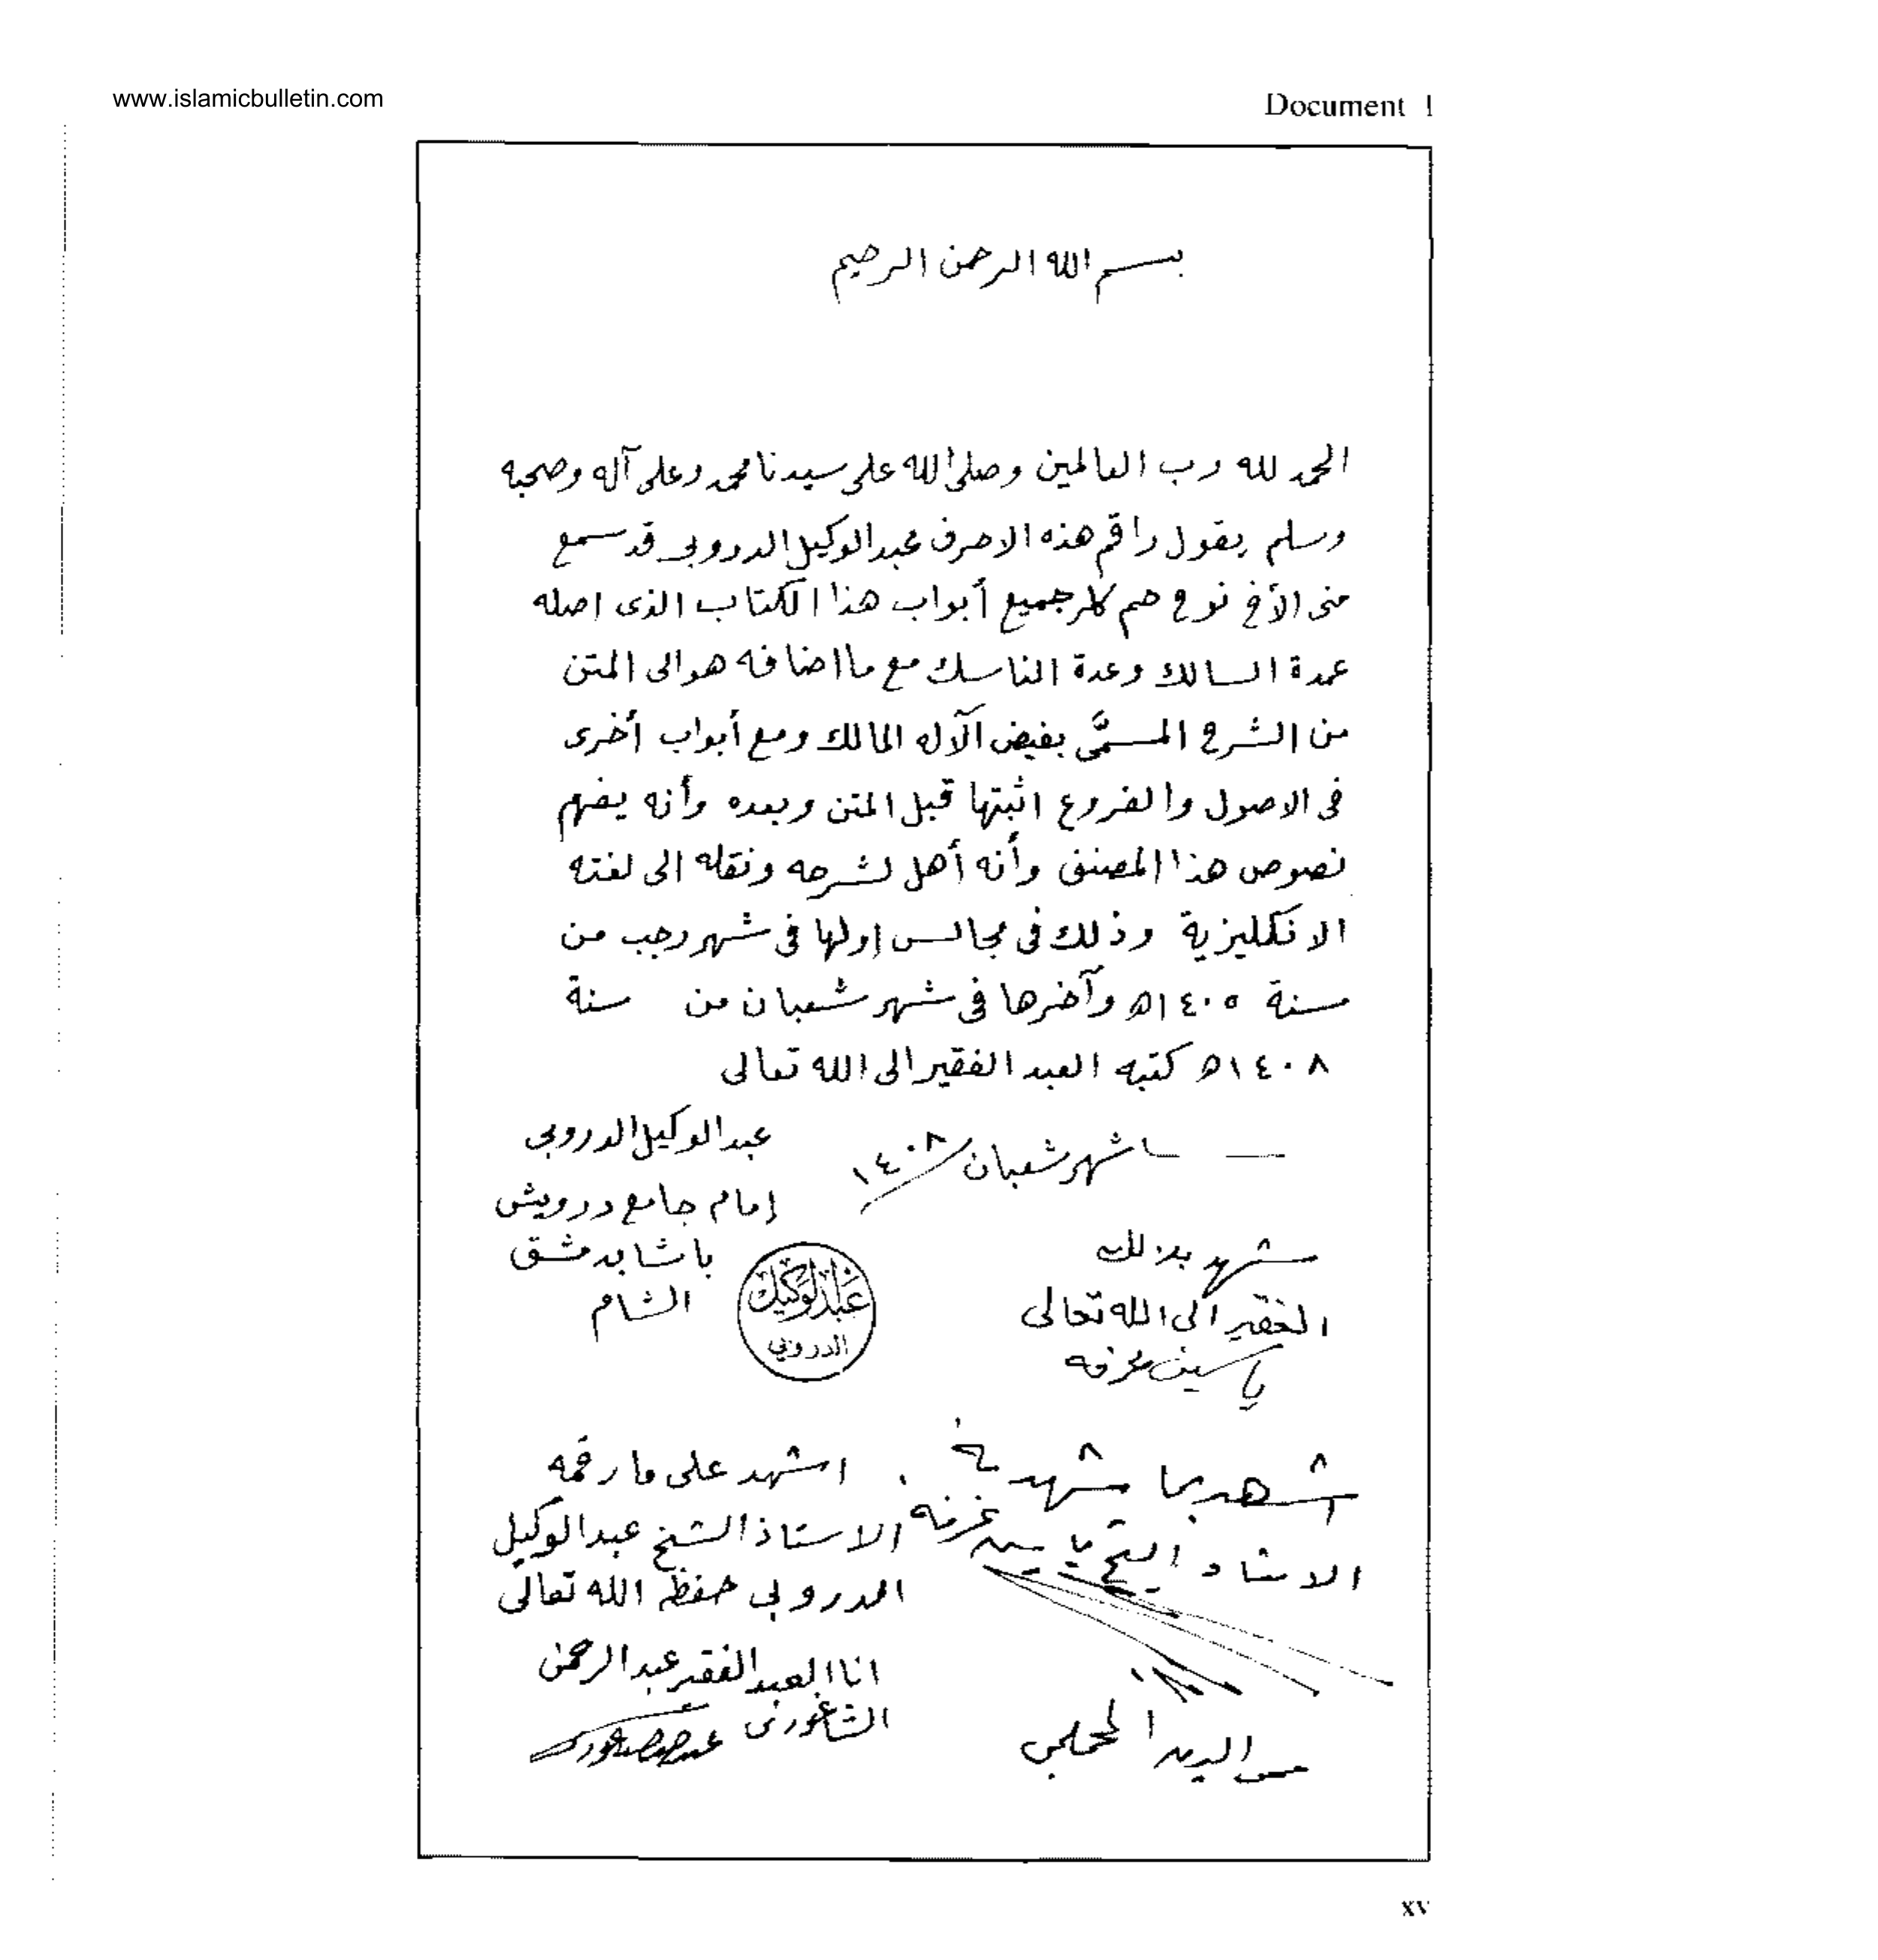 www.islamicbulletin.com
Document 1
بسم الله الرحمن الرحيم
الحمد لله رب العالمين وصلى الله على سيدنا محمد وعلى آله وصحبه
وسلم يقول راقم هذه الاحرف عبدالوكيل الدروبي قد سمع
منى الأخ نوح حم كلر جميع أبواب هذا الكتاب الذى اصله
عمدة السالك وعدة الناسك مع ما اضافه هو الى المتن
من الشرح المسمَّى بفيض الآله المالك ومع أبواب أخرى
فى الاصول والفروع اثبتها قبل المتن وبعده وأنه يفهم
نصوص هذا المصنف وأنه أهل لشرحه ونقله الى لغته
الانكليزية وذلك فى مجالس اولها فى شهر رجب من
سنة ١٤٠٥ه وآخرها فى شهر شعبان من سنة
١٤٠٨ه كتبه العبد الفقير الى الله تعالى
شهر شعبان ١٤٠٨
عبدالوكيل الدروبى
إمام جامع درويش
باشا بدمشق
الشام
عبدالوكيل
الدروبي
شهد بذلك
الفقير الى الله تعالى
ياسين عرفه
اشهد بما شهد به
الاستاذ الشيخ ياسين عرفه
الدين المحملجي
اشهد على ما رقمه
الاستاذ الشيخ عبدالوكيل
الدروبي حفظه الله تعالى
انا العبد الفقير عبدالرحمن
الشاغورى
xv